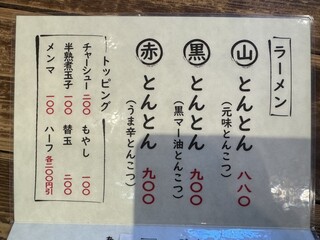 ラーメン
山 とんとん 八八〇
(元味とんこつ)
黒 とんとん 九〇〇
(黒マー油とんこつ)
赤 とんとん 九〇〇
(うま辛とんこつ)
トッピング
チャーシュー 二〇〇 もやし 一〇〇
半熟煮玉子 一〇〇 替玉 二〇〇
メンマ 一〇〇 ハーフ 各二〇〇円引